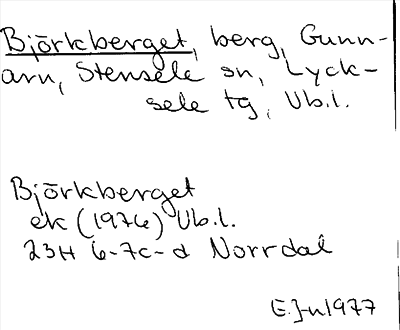 Björkberget, berg, Gunn-
arn, Stensele sn, Lyck-
sele tg, Vb.l.
Björkberget
ek (1976) Vb.l.
23H 6-7c-d Norrdal
E.J-n 1977